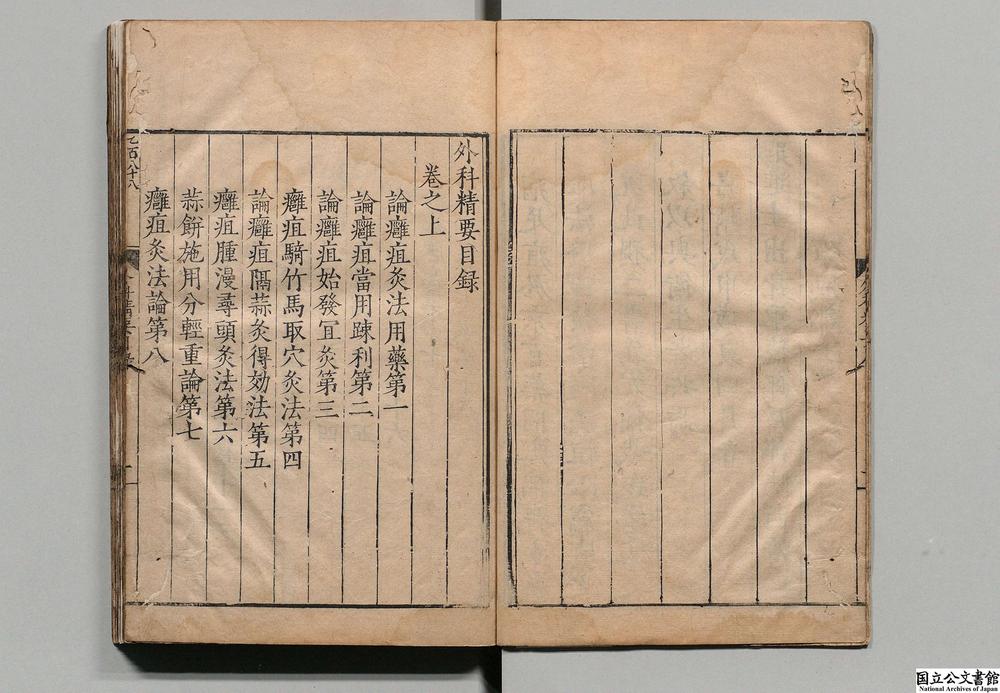 外科精要目録
卷之上
論癰疽灸法用藥第一
論癰疽當用踈利第二
論癰疽始發冝灸第三
癰疽騎竹馬取穴灸法第四
論癰疽隔蒜灸得効法第五
癰疽腫漫尋頭灸法第六
蒜餅施用分輕重論第七
癰疽灸法論第八
七百八十八
国立公文書館
National Archives of Japan